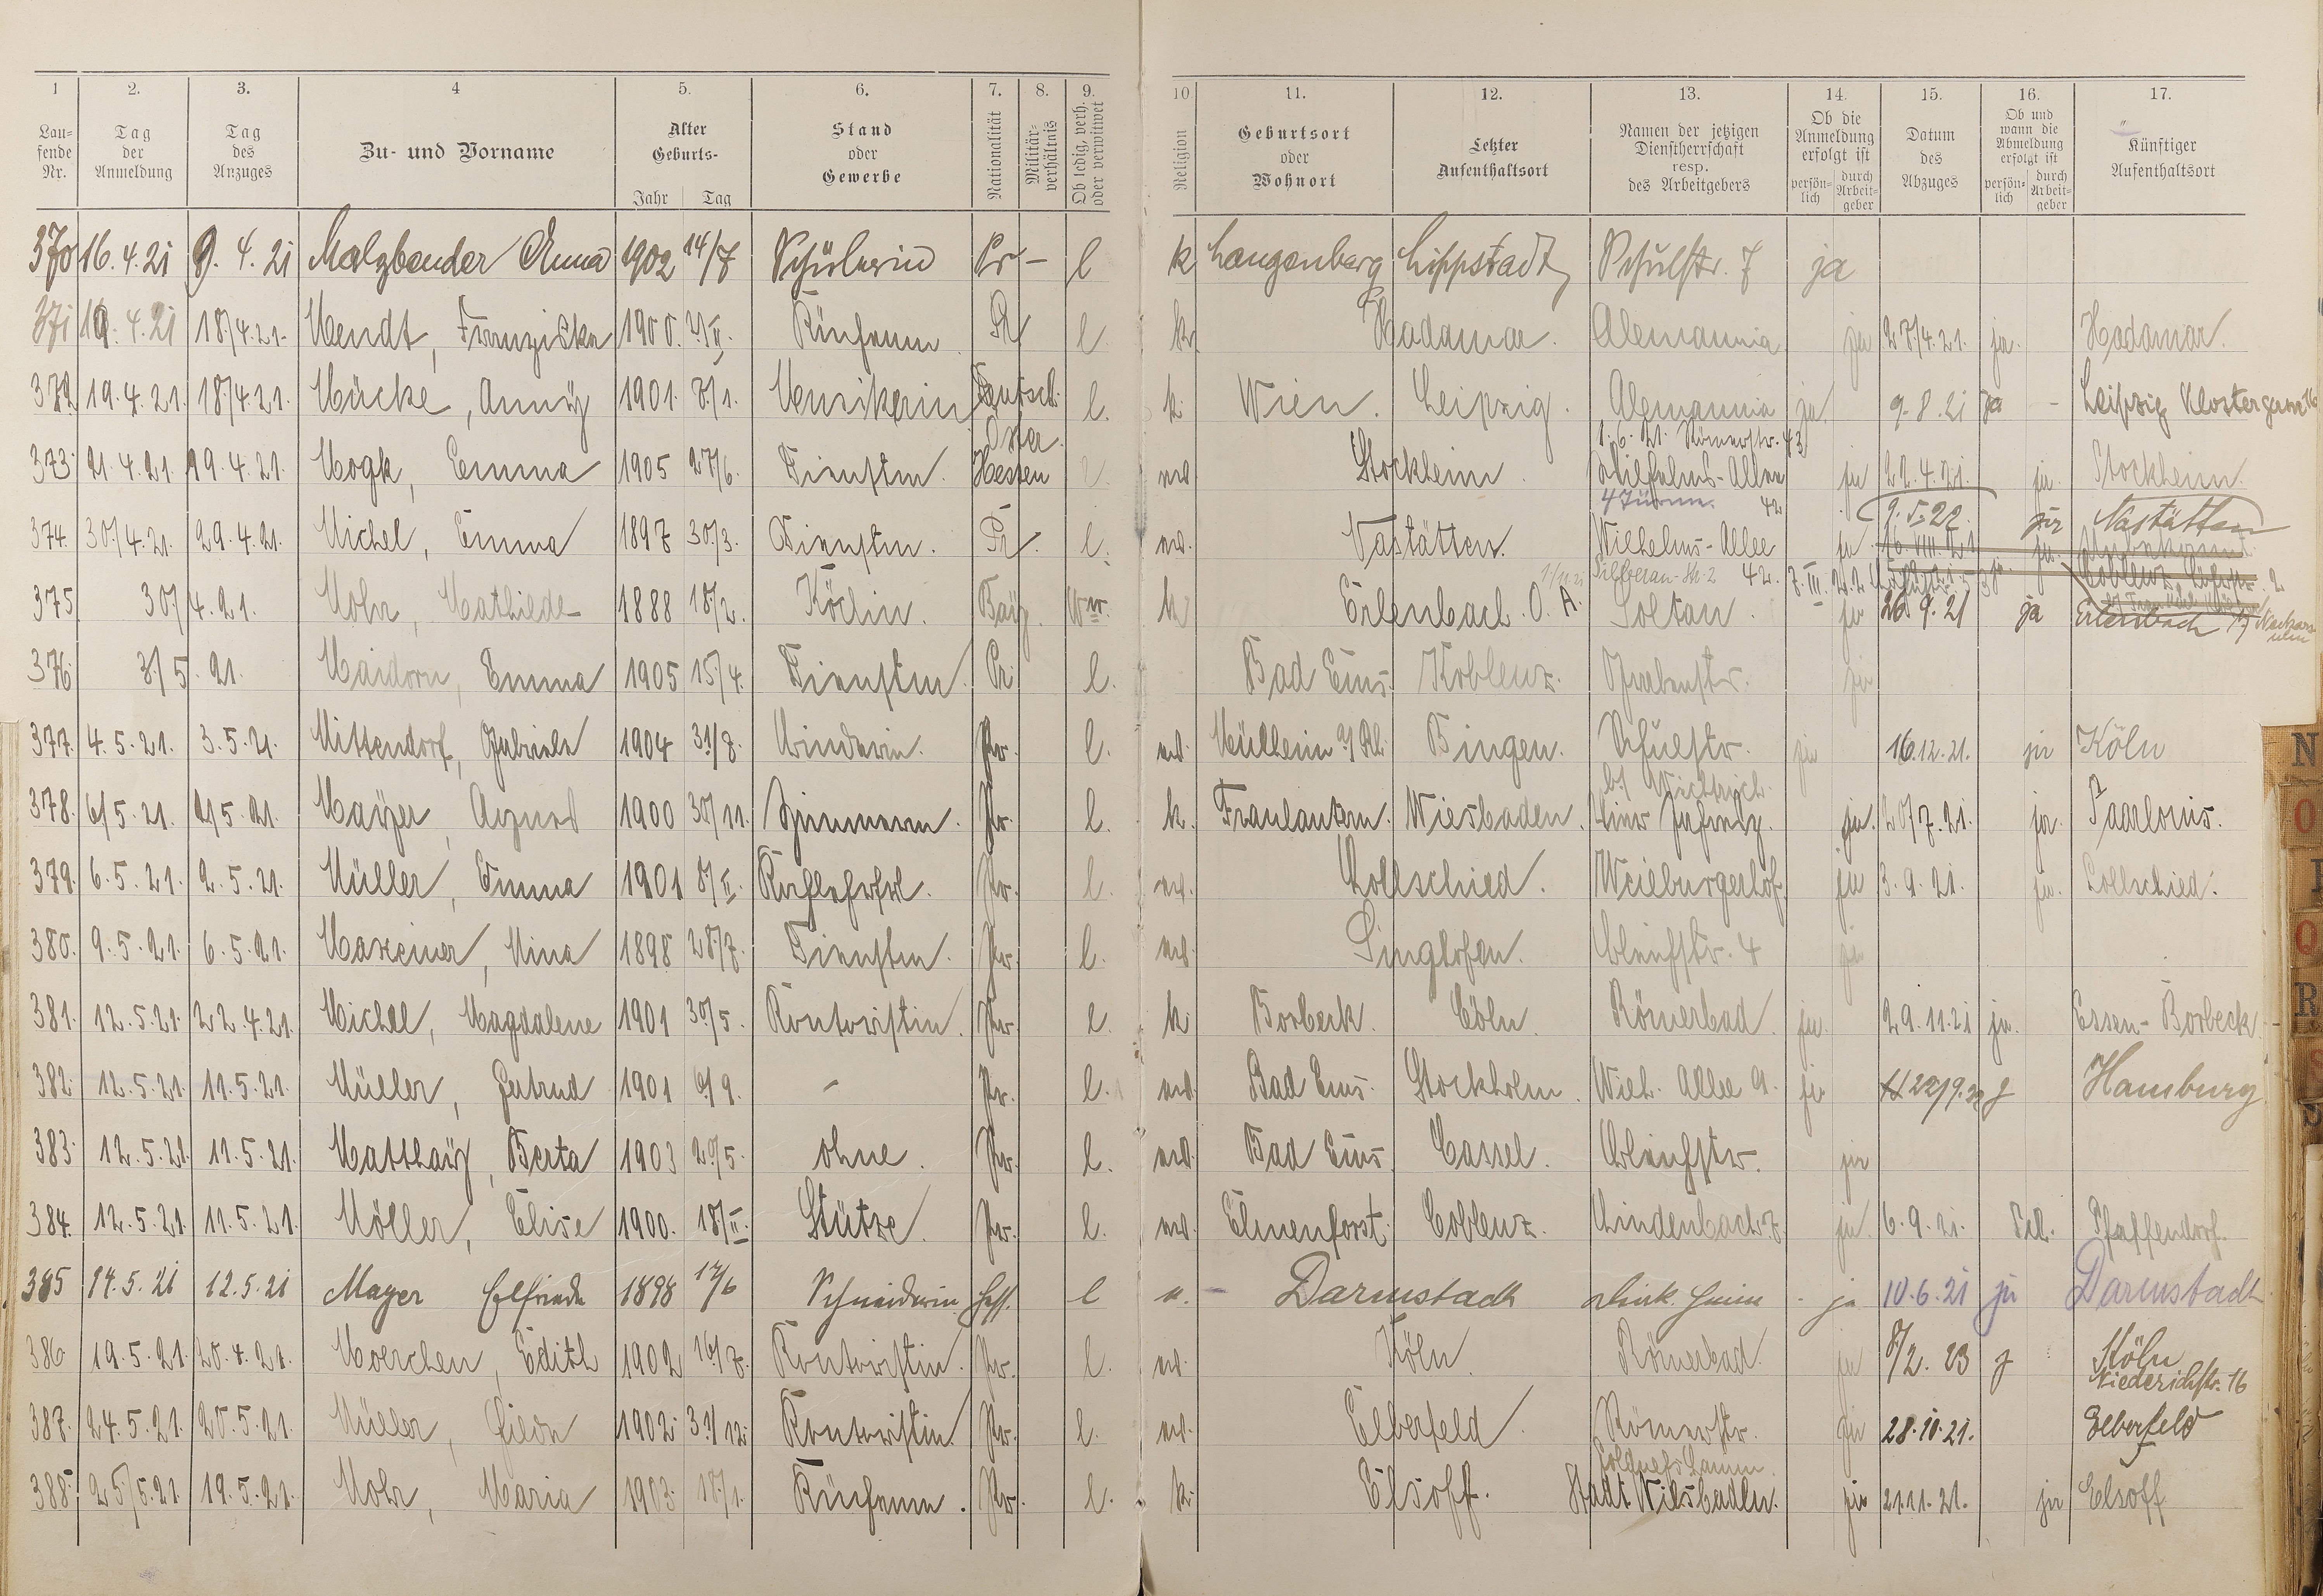 1 2. 3. 4 5. 6. 7. 8. 9. 10 11. 12. 13. 14. 15. 16. 17.
Laufende Nr. Tag der Anmeldung Tag des Anzuges Zu- und Vorname Alter Geburts- Jahr Tag Stand oder Gewerbe Nationalität Militärverhältnis Ob ledig, verh. oder verwitwet Religion Geburtsort oder Wohnort Letzter Aufenthaltsort Namen der jetzigen Dienstherrschaft resp. des Arbeitgebers Ob die Anmeldung erfolgt ist persönlich durch Arbeitgeber Datum des Abzuges Ob und wann die Abmeldung erfolgt ist persönlich durch Arbeitgeber Künftiger Aufenthaltsort
370 16.4.21 9.4.21 Malzbender Anna 1902 14/7 Schülerin Pr – l k Langenberg Lippstadt Schulstr. 7 ja
371 19.4.21 18/4.21. Mendt, Franziska 1900. Küchenm. Pr l. k. Hadamar. Alemannia ja 27/4.21. ja. Hadamar.
372 19.4.21. 18/4.21. Mücke, Anny 1901. 8/1. Musikerin Deutsch. Öster. l. k. Wien. Leipzig. Alemannia ja 9.8.21 ja – Leipzig
1.6.21. Römerstr. 43
373. 21.4.21 19.4.21. Mogk, Emma 1905 27/6. Dienstm. Hessen l. ev. Stockheim Wilhelms-Allee ja 22.4.21. ja. Stockheim.
4 Türme. 42
9.5.22. ja Nastätten
374. 30/4.21. 29.4.21. Michel, Emma 1897 30/3. Dienstm. Pr. l. ev. Nastätten. Wilhelms-Allee 42. ja 10.VIII.21 ja.
375 30/4.21. Mohr, Mathilde 1888 18/2. Köchin. Bay. Ww. k Erlenbach. O. A. Soltau. ja 26.9.21 ja Erlenbach Neckarsulm
376. 3/5.21. Maidorn, Emma 1905 15/4. Dienstm. Pr l. Bad Ems. Koblenz. Grabenstr. ja
377. 4.5.21. 3.5.21. Mittendorf, Gabriele 1904 31/8. Binderin. Pr. l. ev. Mülheim a/Rh. Bingen. Schulstr. ja 16.12.21. ja Köln
378. 6/5.21. 2/5.21. Mayer, Agnes 1900 30/11. Zimmerm. Pr. l. k. Fraulautern. Wiesbaden. ja. 20/7.21. ja. Saarlouis.
379. 6.5.21. 2.5.21. Müller, Emma 1901 8/II. Kochlehrfrl. Pr. l. ev. Lollschied. Weilburgerhof. ja 3.9.21. ja. Lollschied.
380. 9.5.21. 6.5.21. Maxeiner, Mina 1898 28/7. Dienstm. Pr. l. ev. Singhofen. Bleichstr. 4 ja
381. 12.5.21. 22.4.21. Michel, Magdalene 1901 30/5. Kontoristin. Pr. l. k Borbeck. Cöln. Römerbad. ja. 29.11.21 ja. Essen-Borbeck
382. 12.5.21. 11.5.21. Müller, Gertrud 1901 6/9. – Pr. l. ev. Bad Ems. Stockholm. Wilh. Allee 9. ja 22/9.22 j Hamburg
383. 12.5.21. 11.5.21. Matthäy, Berta 1903 20/5. ohne. Pr. l. ev. Bad Ems Cassel. Bleichstr. ja
384. 12.5.21. 11.5.21. Möller, Elise 1900. 18/II. Stütze. Pr. l. ev. Elmenforst. Coblenz. Lindenbach 7. ja. 6.9.21. Pfaffendorf.
385 14.5.21 12.5.21 Mayer Elfriede 1898 12/6 Schneiderin Hess. l Darmstadt ja 10.6.21 ja Darmstadt
386 19.5.21. 20.4.21. Moerchen, Edith 1902 16/7. Kontoristin. Pr. l. ev. Köln. Römerbad. ja 8/2.23 j Köln
Niederichstr. 16
387. 24.5.21. 20.5.21. Müller, 1902. 31/12. Kontoristin. Pr. l. ev. Elberfeld. Römerstr. ja 28.10.21. Elberfeld
388. 25/5.21. 19.5.21. Mohr, Maria 1903. 18/1. Küchenm. Pr. l. k. Elsoff. Stadt Wiesbaden. ja 21.11.21. ja Elsoff
N
O
P
Q
R
S